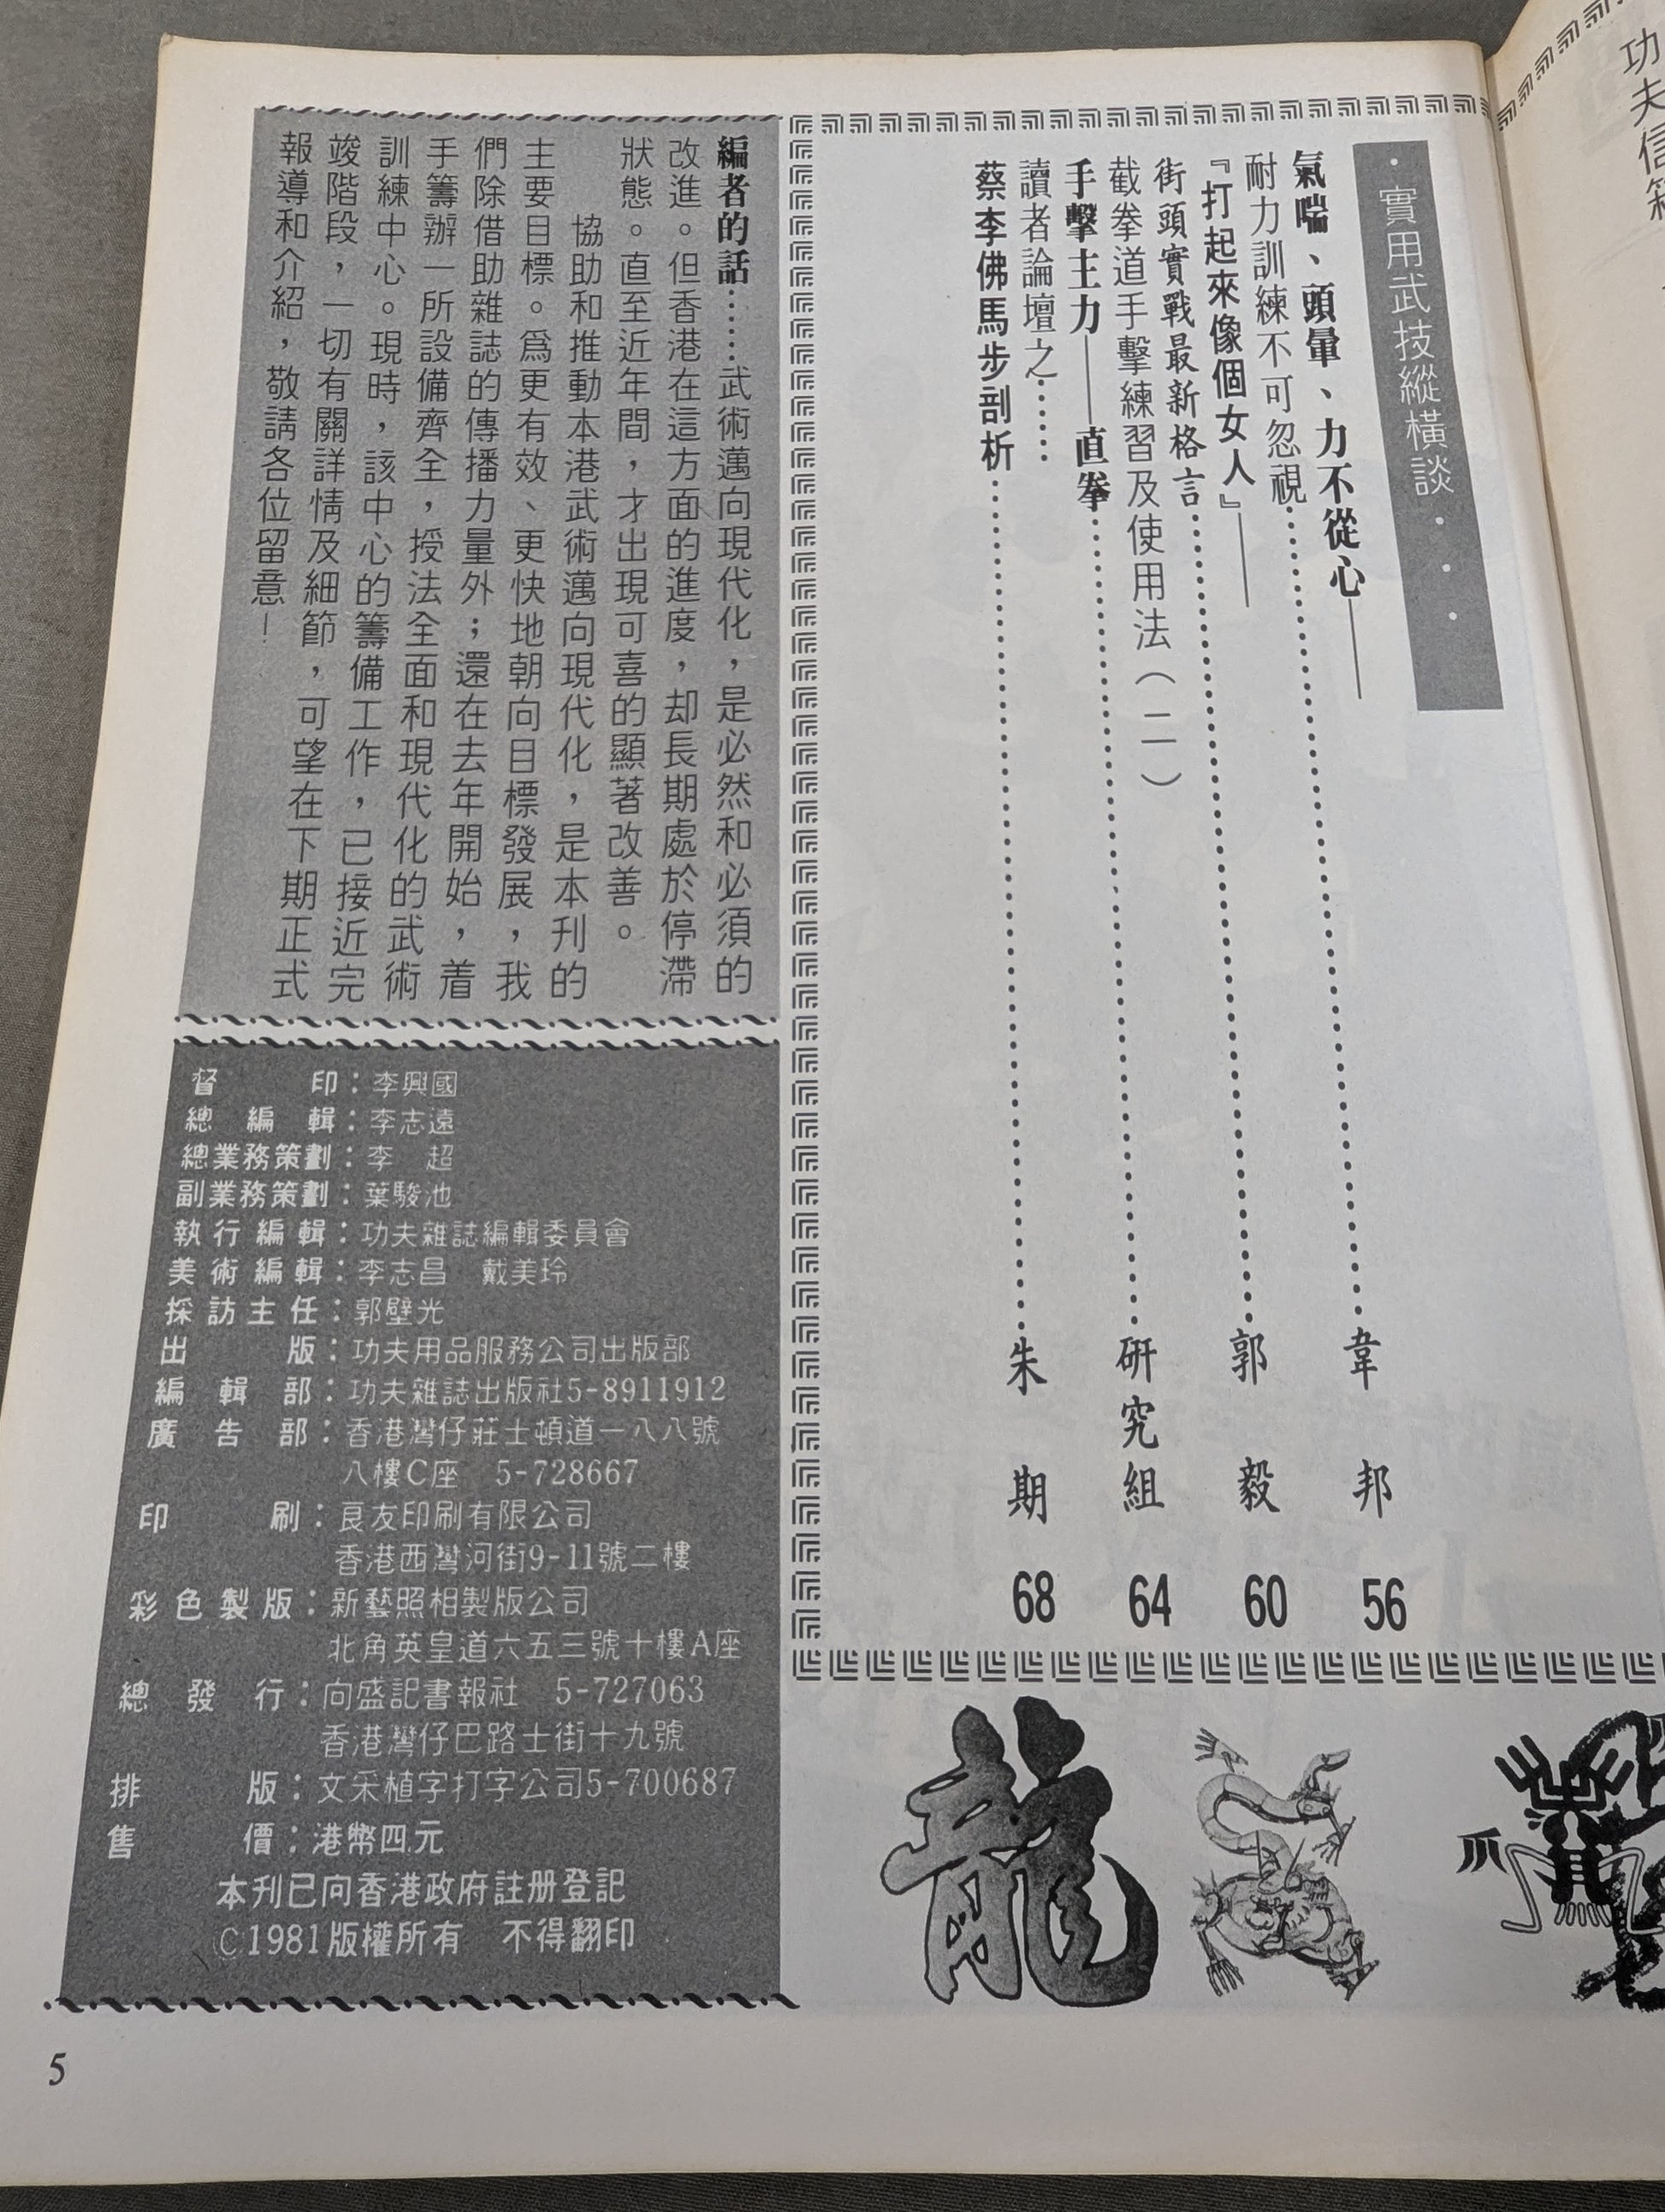 功夫信箱
・實用武技縱橫談・・・
氣喘、頭暈、力不從心——
耐力訓練不可忽視……韋邦 56
『打起來像個女人』——
街頭實戰最新格言……郭毅 60
截拳道手擊練習及使用法（二）
手擊主力——直拳……研究組 64
讀者論壇之……
蔡李佛馬步剖析……朱期 68
編者的話……武術邁向現代化，是必然和必須的
改進。但香港在這方面的進度，却長期處於停滯
狀態。直至近年間，才出現可喜的顯著改善。
協助和推動本港武術邁向現代化，是本刊的
主要目標。爲更有效、更快地朝向目標發展，我
們除借助雜誌的傳播力量外；還在去年開始，着
手籌辦一所設備齊全，授法全面和現代化的武術
訓練中心。現時，該中心的籌備工作，已接近完
竣階段，一切有關詳情及細節，可望在下期正式
報導和介紹，敬請各位留意！
督印：李興國
總編輯：李志遠
總業務策劃：李 超
副業務策劃：葉駿池
執行編輯：功夫雜誌編輯委員會
美術編輯：李志昌 戴美玲
採訪主任：郭壁光
出版：功夫用品服務公司出版部
編輯部：功夫雜誌出版社5-8911912
廣告部：香港灣仔莊士頓道一八八號
八樓C座 5-728667
印刷：良友印刷有限公司
香港西灣河街9-11號二樓
彩色製版：新藝照相製版公司
北角英皇道六五三號十樓A座
總發行：向盛記書報社 5-727063
香港灣仔巴路士街十九號
排版：文采植字打字公司5-700687
售價：港幣四元
本刊已向香港政府註册登記
©1981版權所有 不得翻印
龍
5